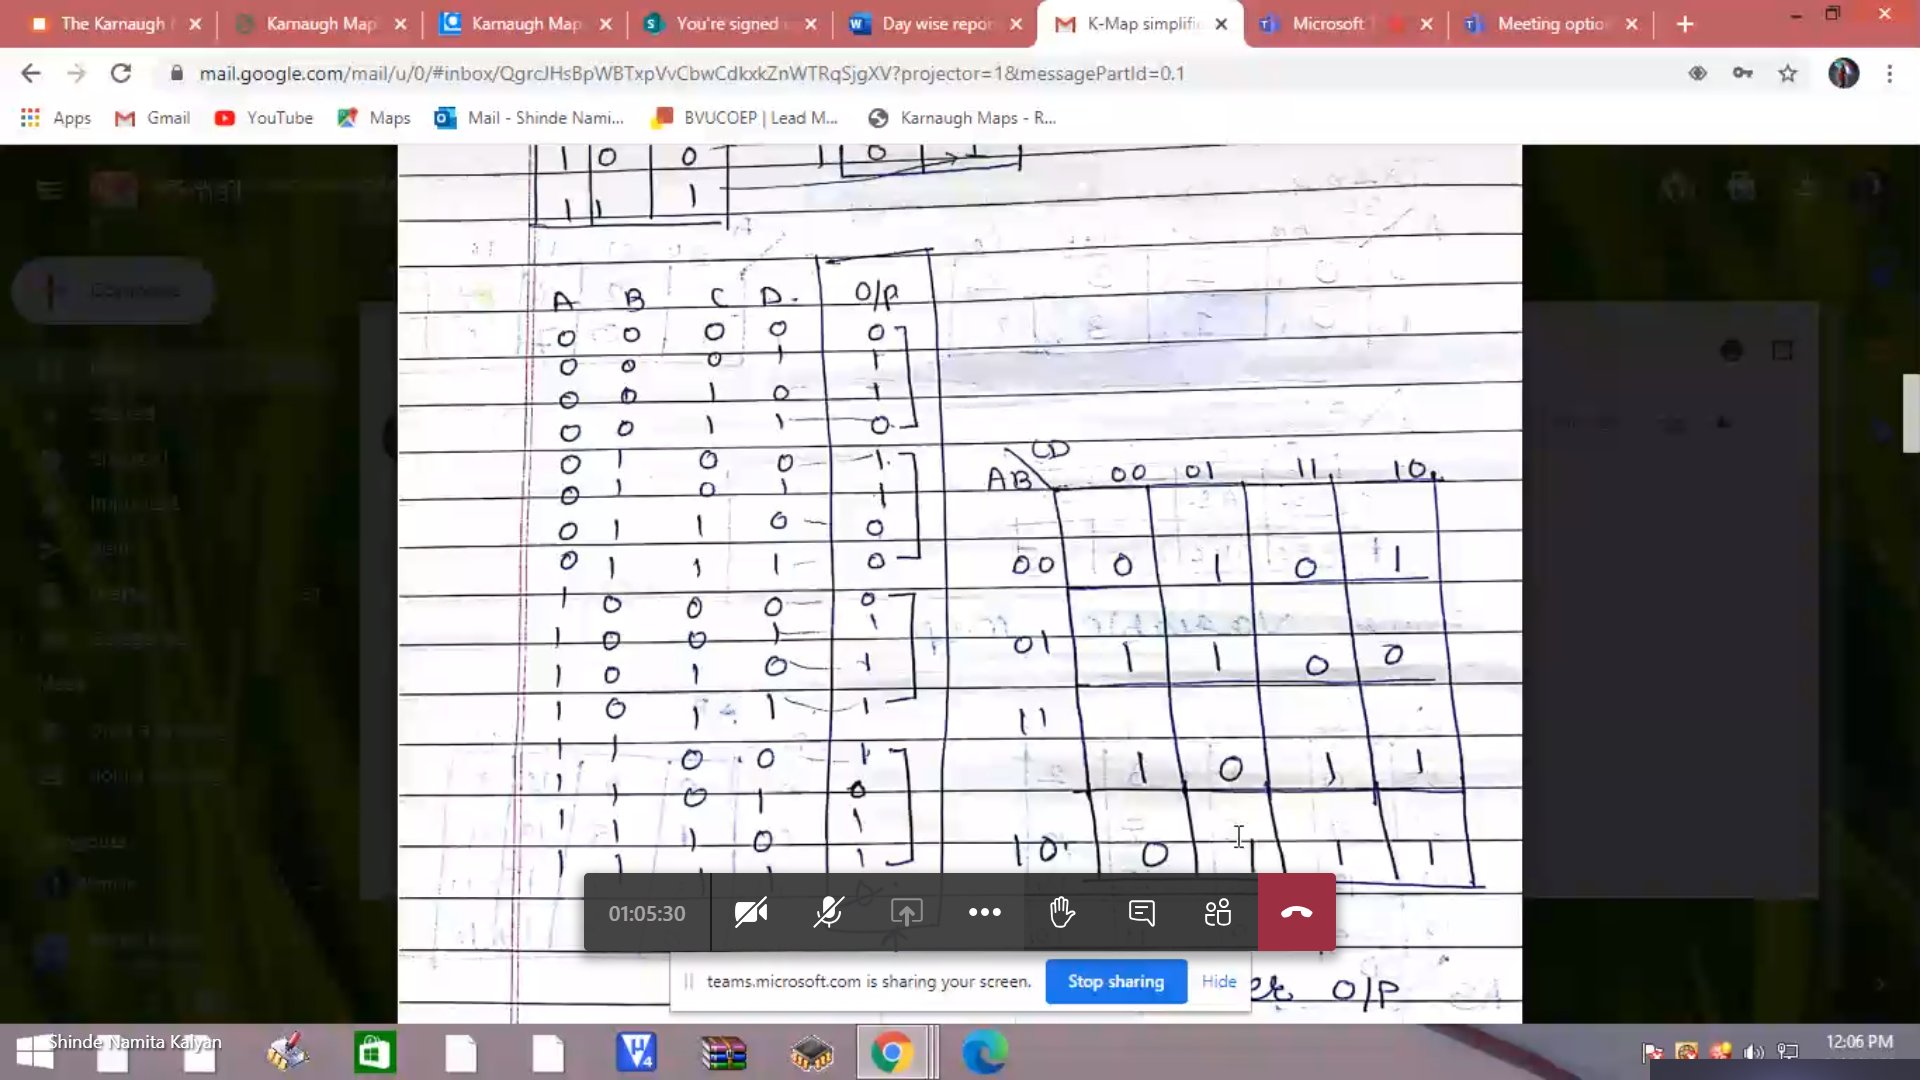 The Karnaugh
Karnaugh Map
Karnaugh Map
You're signed
Day wise repor
K-Map simplifi
Microsoft
Meeting optio
mail.google.com/mail/u/0/#inbox/QgrcJHsBpWBTxpVvCbwCdkxkZnWTRqSjgXV?projector=1&messagePartId=0.1
Apps
Gmail
YouTube
Maps
Mail - Shinde Nami...
BVUCOEP | Lead M...
Karnaugh Maps - R...
1 0 0 1 0 1
1 1 1
A B C D. O/P
0 0 0 0 0
0 0 0 1 1
0 0 1 0 1
0 0 1 1 0
0 1 0 0 1
0 1 0 1 1
0 1 1 0 0
0 1 1 1 0
1 0 0 0 0
1 0 0 1 1
1 0 1 0 1
1 0 1 1 1
1 1 0 0 1
1 1 0 1 0
1 1 1 0 1
1 1 1 1 1
CD
AB 00 01 11 10
00 0 1 0 1
01 1 1 0 0
11 1 0 1 1
10 0 1 1 1
O/P
01:05:30
teams.microsoft.com is sharing your screen.
Stop sharing
Hide
Shinde Namita Kalyan
12:06 PM